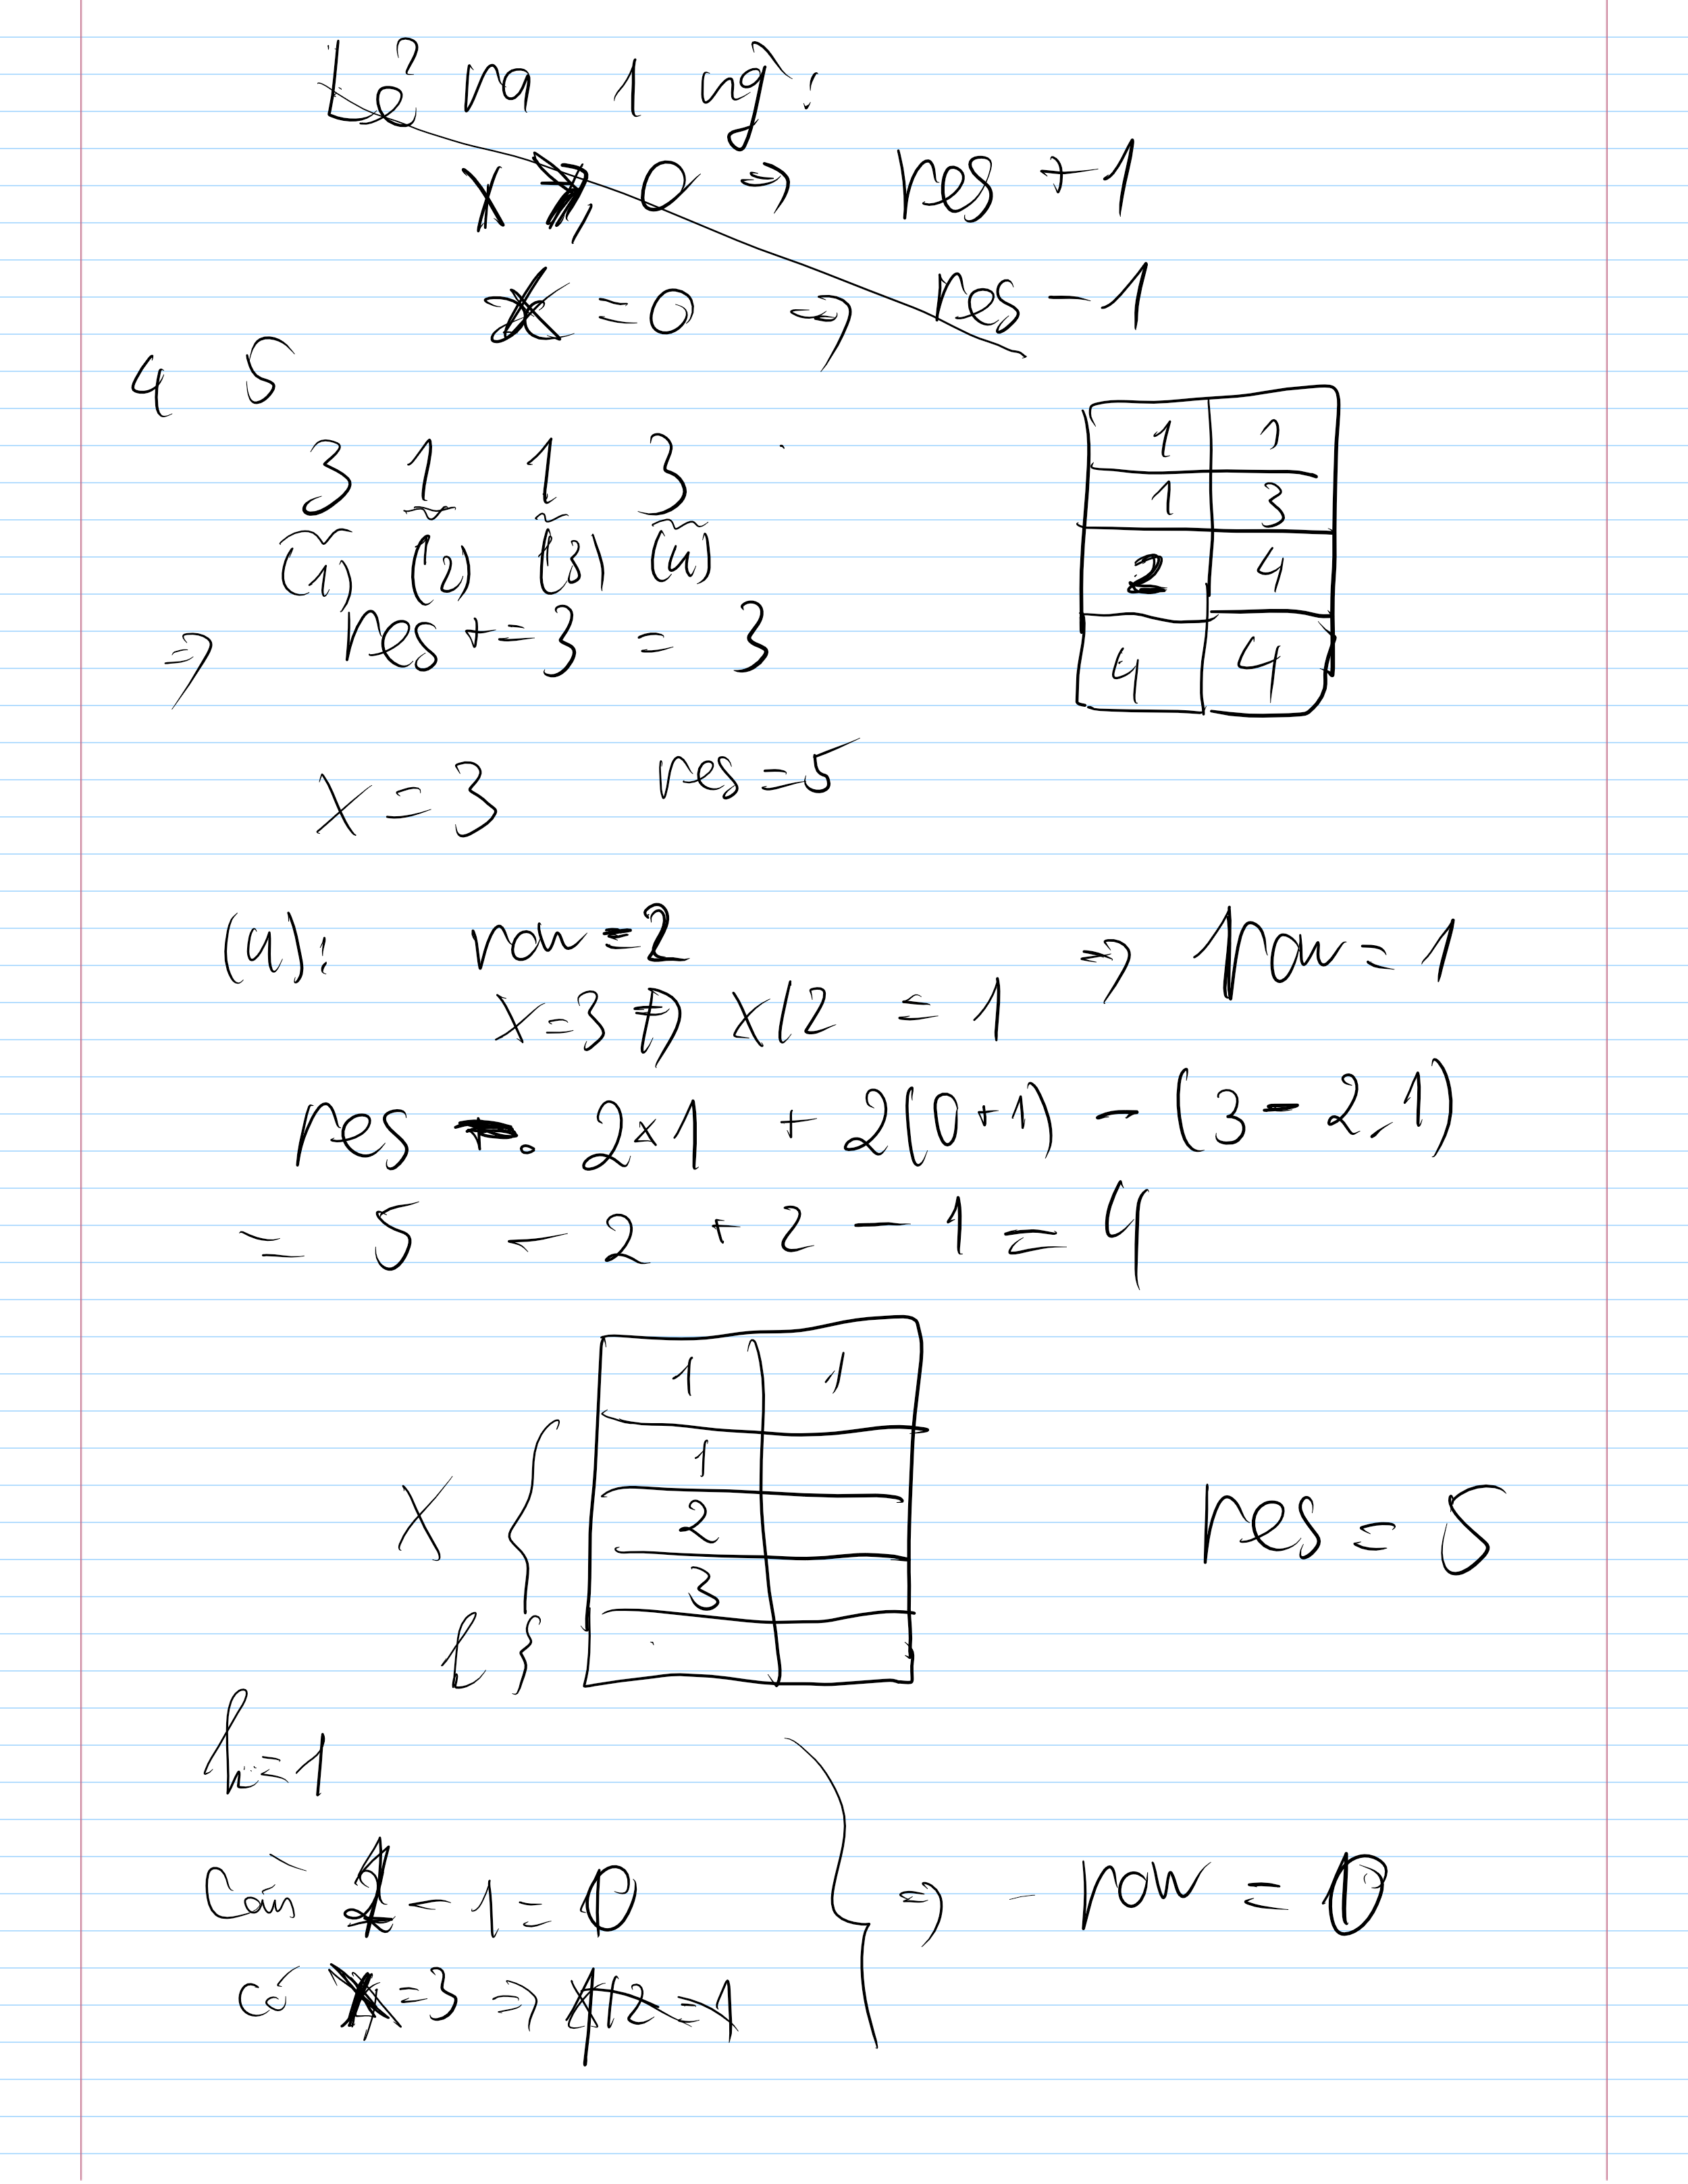 Lẻ ra 1 ng:
x > 0 ⇒ res + 1
x = 0 ⇒ res - 1
4 5
3 1 1 3
(1) (2) (3) (4)
⇒ res += 3 = 3
1 1
1 3
2 4
4 4
x = 3 res = 5
(4): row = 2 ⇒ row = 1
x = 3 ⇒ x/2 = 1
res - 2×1 + 2(0+1) - (3-2.1)
= 5 - 2 + 2 - 1 = 4
1 1
1
2
3
x
res = 5
k = 1
Cần 1 - 1 = 0
có x = 3 ⇒ x/2 = 1
⇒ row = 0